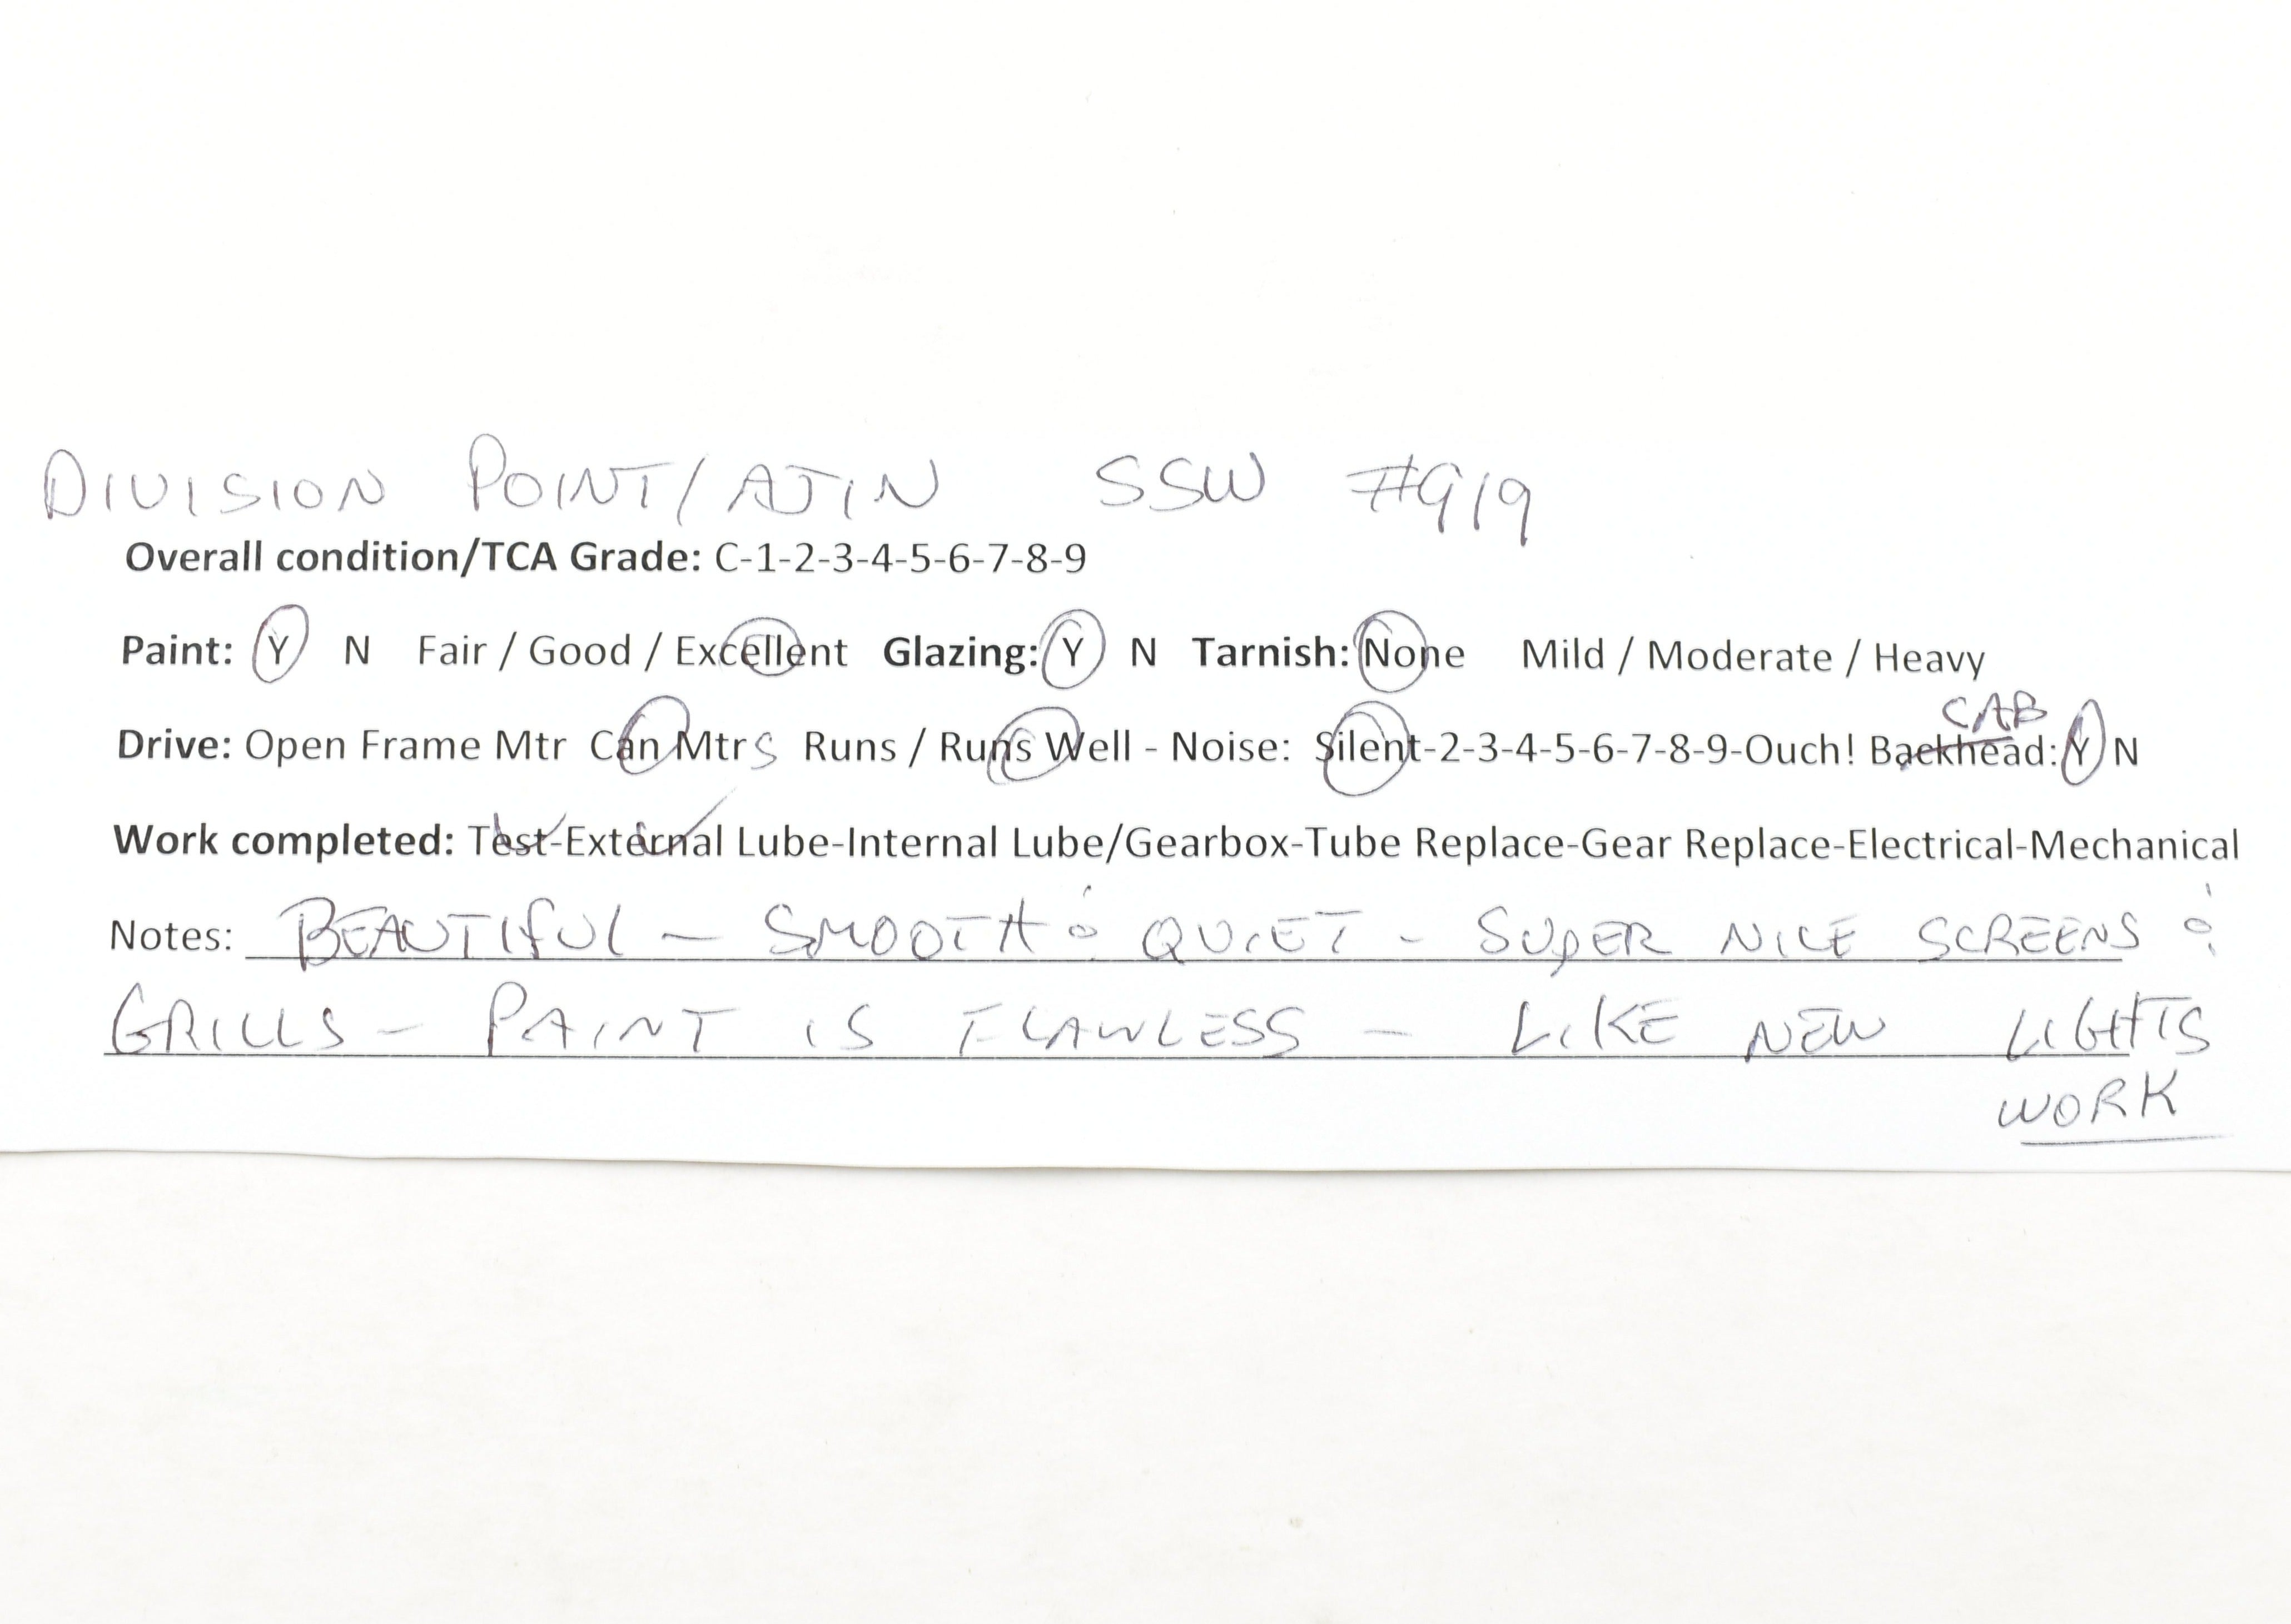 DIVISION POINT/AJIN SSW #919
Overall condition/TCA Grade: C-1-2-3-4-5-6-7-8-9
Paint: Y N Fair / Good / Excellent Glazing: Y N Tarnish: None Mild / Moderate / Heavy
CAB
Drive: Open Frame Mtr Can Mtrs Runs / Runs Well - Noise: Silent-2-3-4-5-6-7-8-9-Ouch! Backhead: Y N
Work completed: Test-External Lube-Internal Lube/Gearbox-Tube Replace-Gear Replace-Electrical-Mechanical
Notes: BEAUTIFUL - SMOOTH & QUIET - SUPER NICE SCREENS &
GRILLS - PAINT IS FLAWLESS - LIKE NEW LIGHTS
WORK